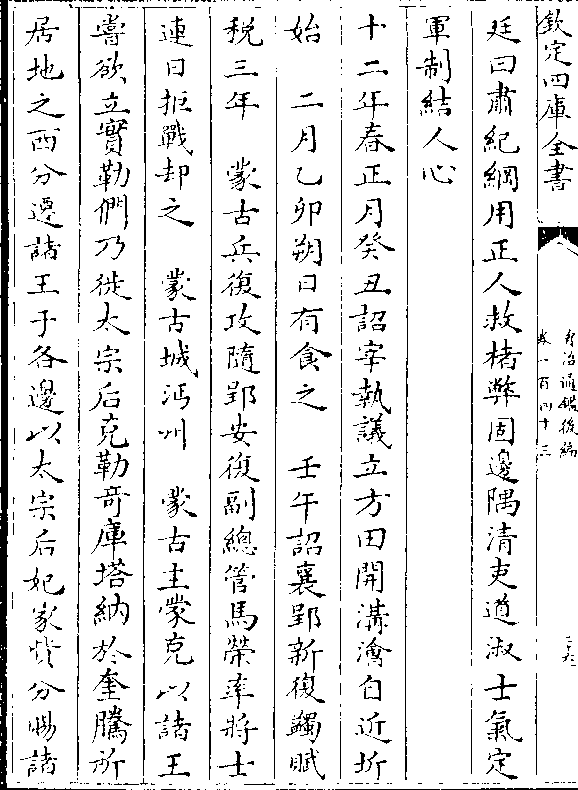 欽定四庫全書
資治通鑑後編
卷一百四十三
二十六
廷曰肅紀綱用正人救楮弊固邊隅清吏道淑士氣定
軍制結人心
十二年春正月癸丑詔宰執議立方田開溝澮自近圻
始　二月乙卯朔日有食之　壬午詔襄郢新復蠲賦
稅三年　蒙古兵復攻隨郢安復副總管馬榮率將士
連日拒戰却之　蒙古城沔州　蒙古主蒙克以諸王
嘗欲立實勒們乃徙太宗后克勒竒庫塔納於奎騰所
居地之西分遷諸王于各邊以太宗后妃家貲分賜諸